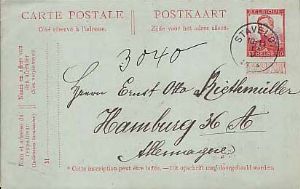 CARTE POSTALE POSTKAART
Côté réservé à l'adresse. Zijde voor het adres alleen.
BELGIQUE
STAVELOT
3040
Herrn Ernst Otto Riethmüller
Hamburg 36 A
Allemagne
* Cette inscription peut être biffée. — Dit opschrift mag doorgehaald worden.